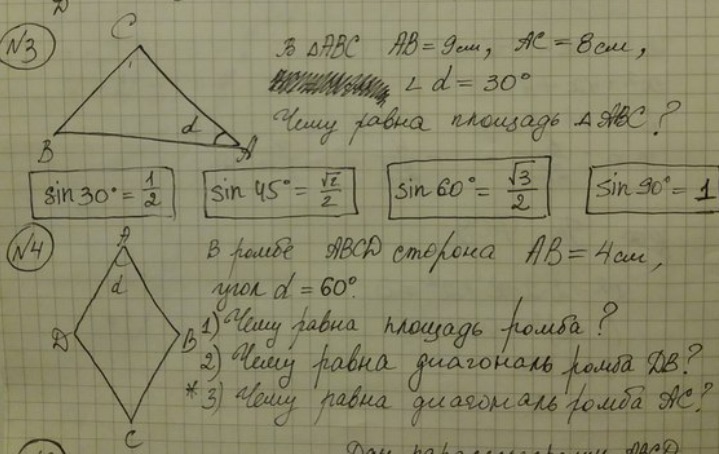 D
N3
C
B
A
d
В △ABC AB = 9см, AC = 8см,
∠ d = 30°
Чему равна площадь △ ABC?
sin 30° = 1/2
sin 45° = √2/2
sin 60° = √3/2
sin 90° = 1
N4
A
d
D
B
C
В ромбе ABCD сторона AB = 4см,
угол d = 60°.
1) Чему равна площадь ромба?
2) Чему равна диагональ ромба DB?
* 3) Чему равна диагональ ромба AC?